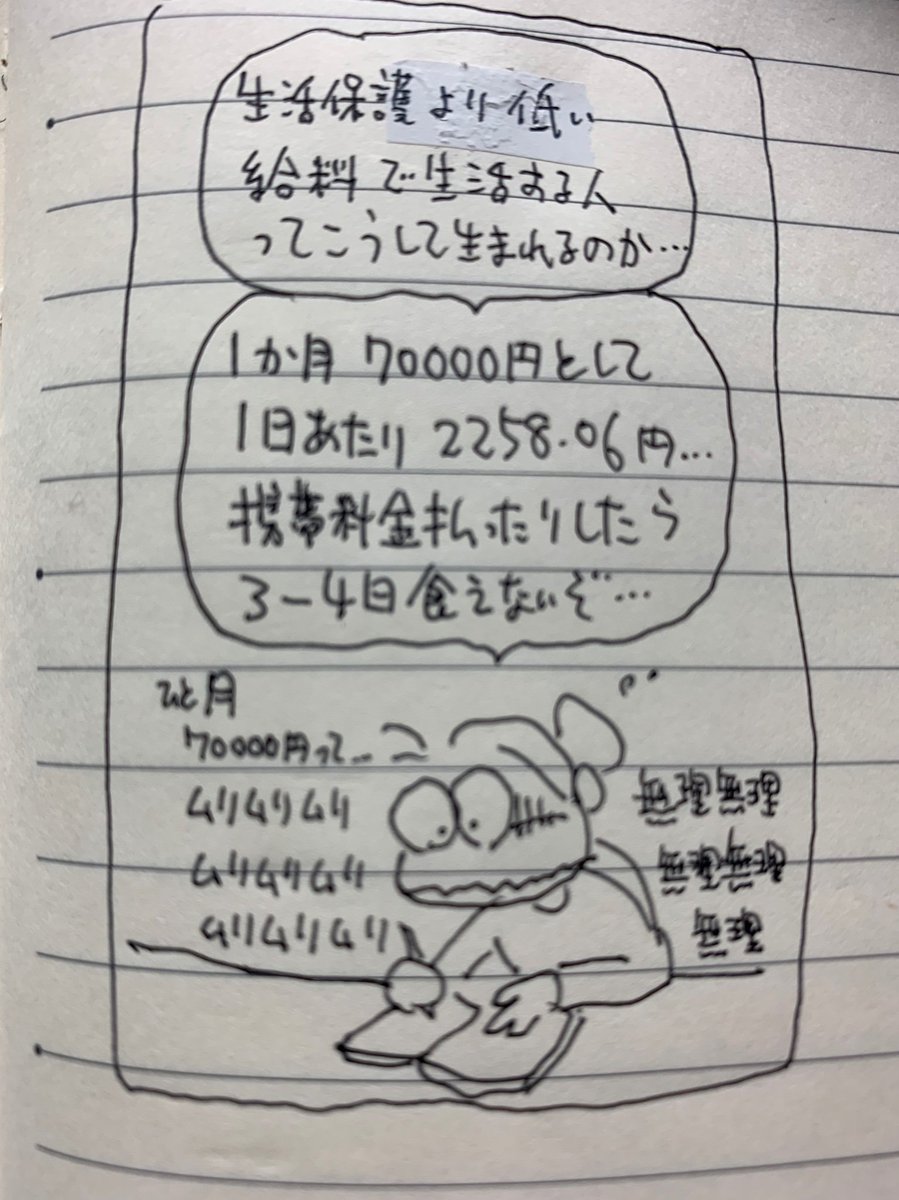 生活保護より低い
給料で生活する人
ってこうして生まれるのか…
1か月 70000円として
1日あたり 2258.06円…
携帯料金払ったりしたら
3-4日食えないぞ…
ひと月
70000円って…
ムリムリムリ
ムリムリムリ
ムリムリムリ
無理無理
無理無理
無理